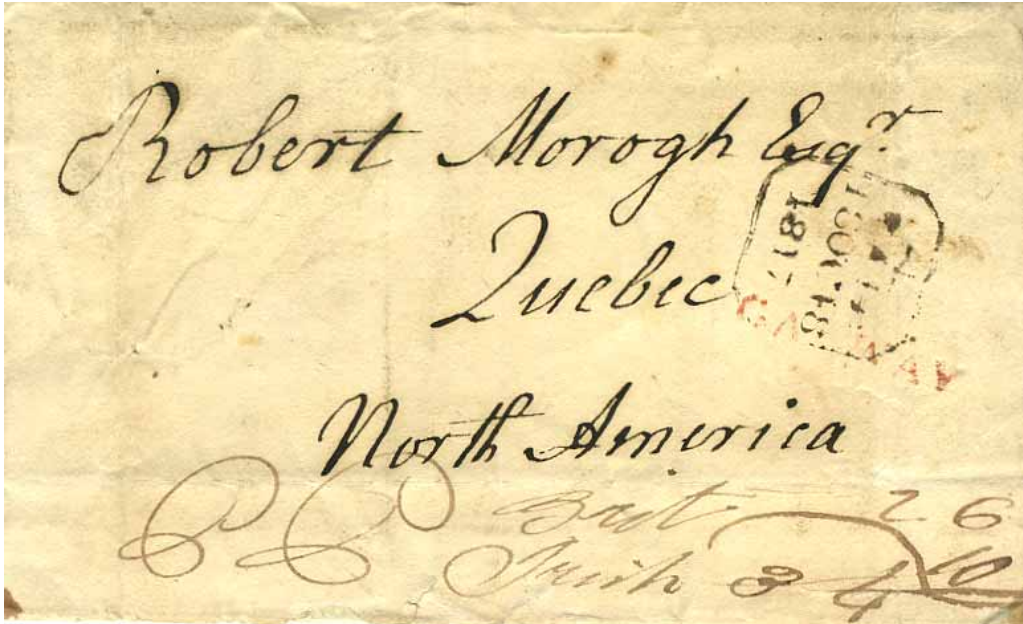 Robert Morogh Esqr.
Quebec
North America
GALWAY
Brit 2 6
Irish 10
3 4